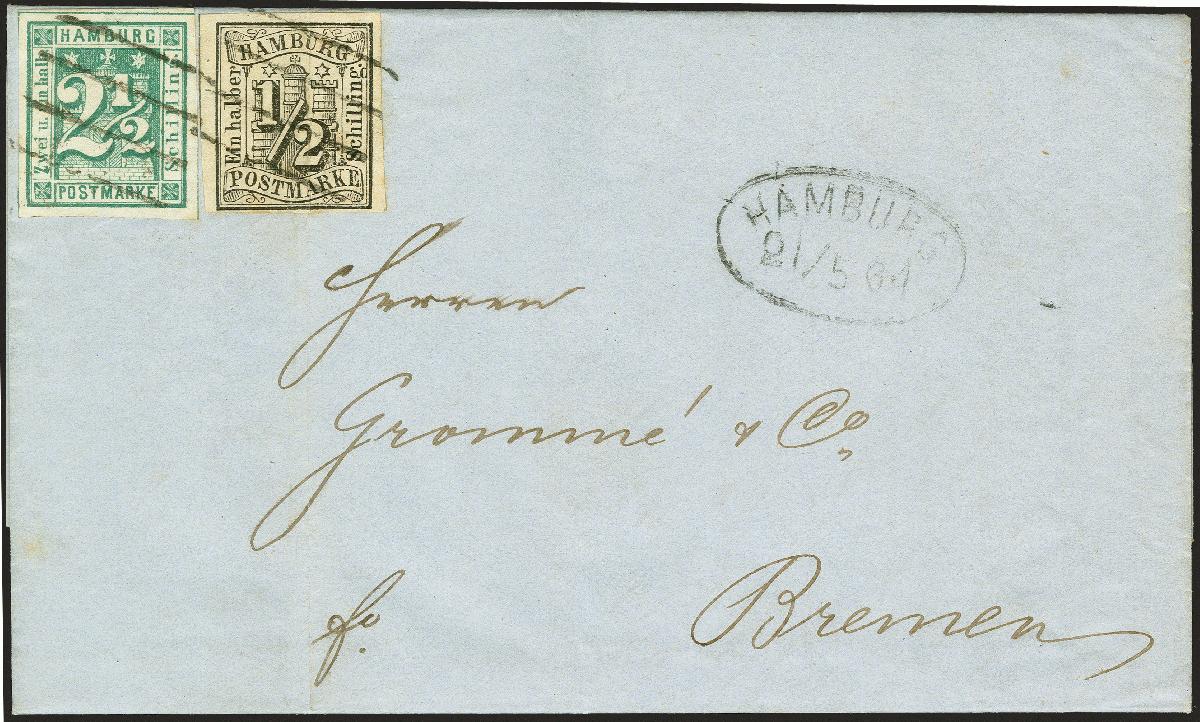 HAMBURG
Zwei u. ein halb
2 1/2
Schilling.
POSTMARKE
HAMBURG
Ein halber
1/2
Schilling.
POSTMARKE
HAMBURG
21/5 64
Herren
Grommé & Co.
fo.
Bremen